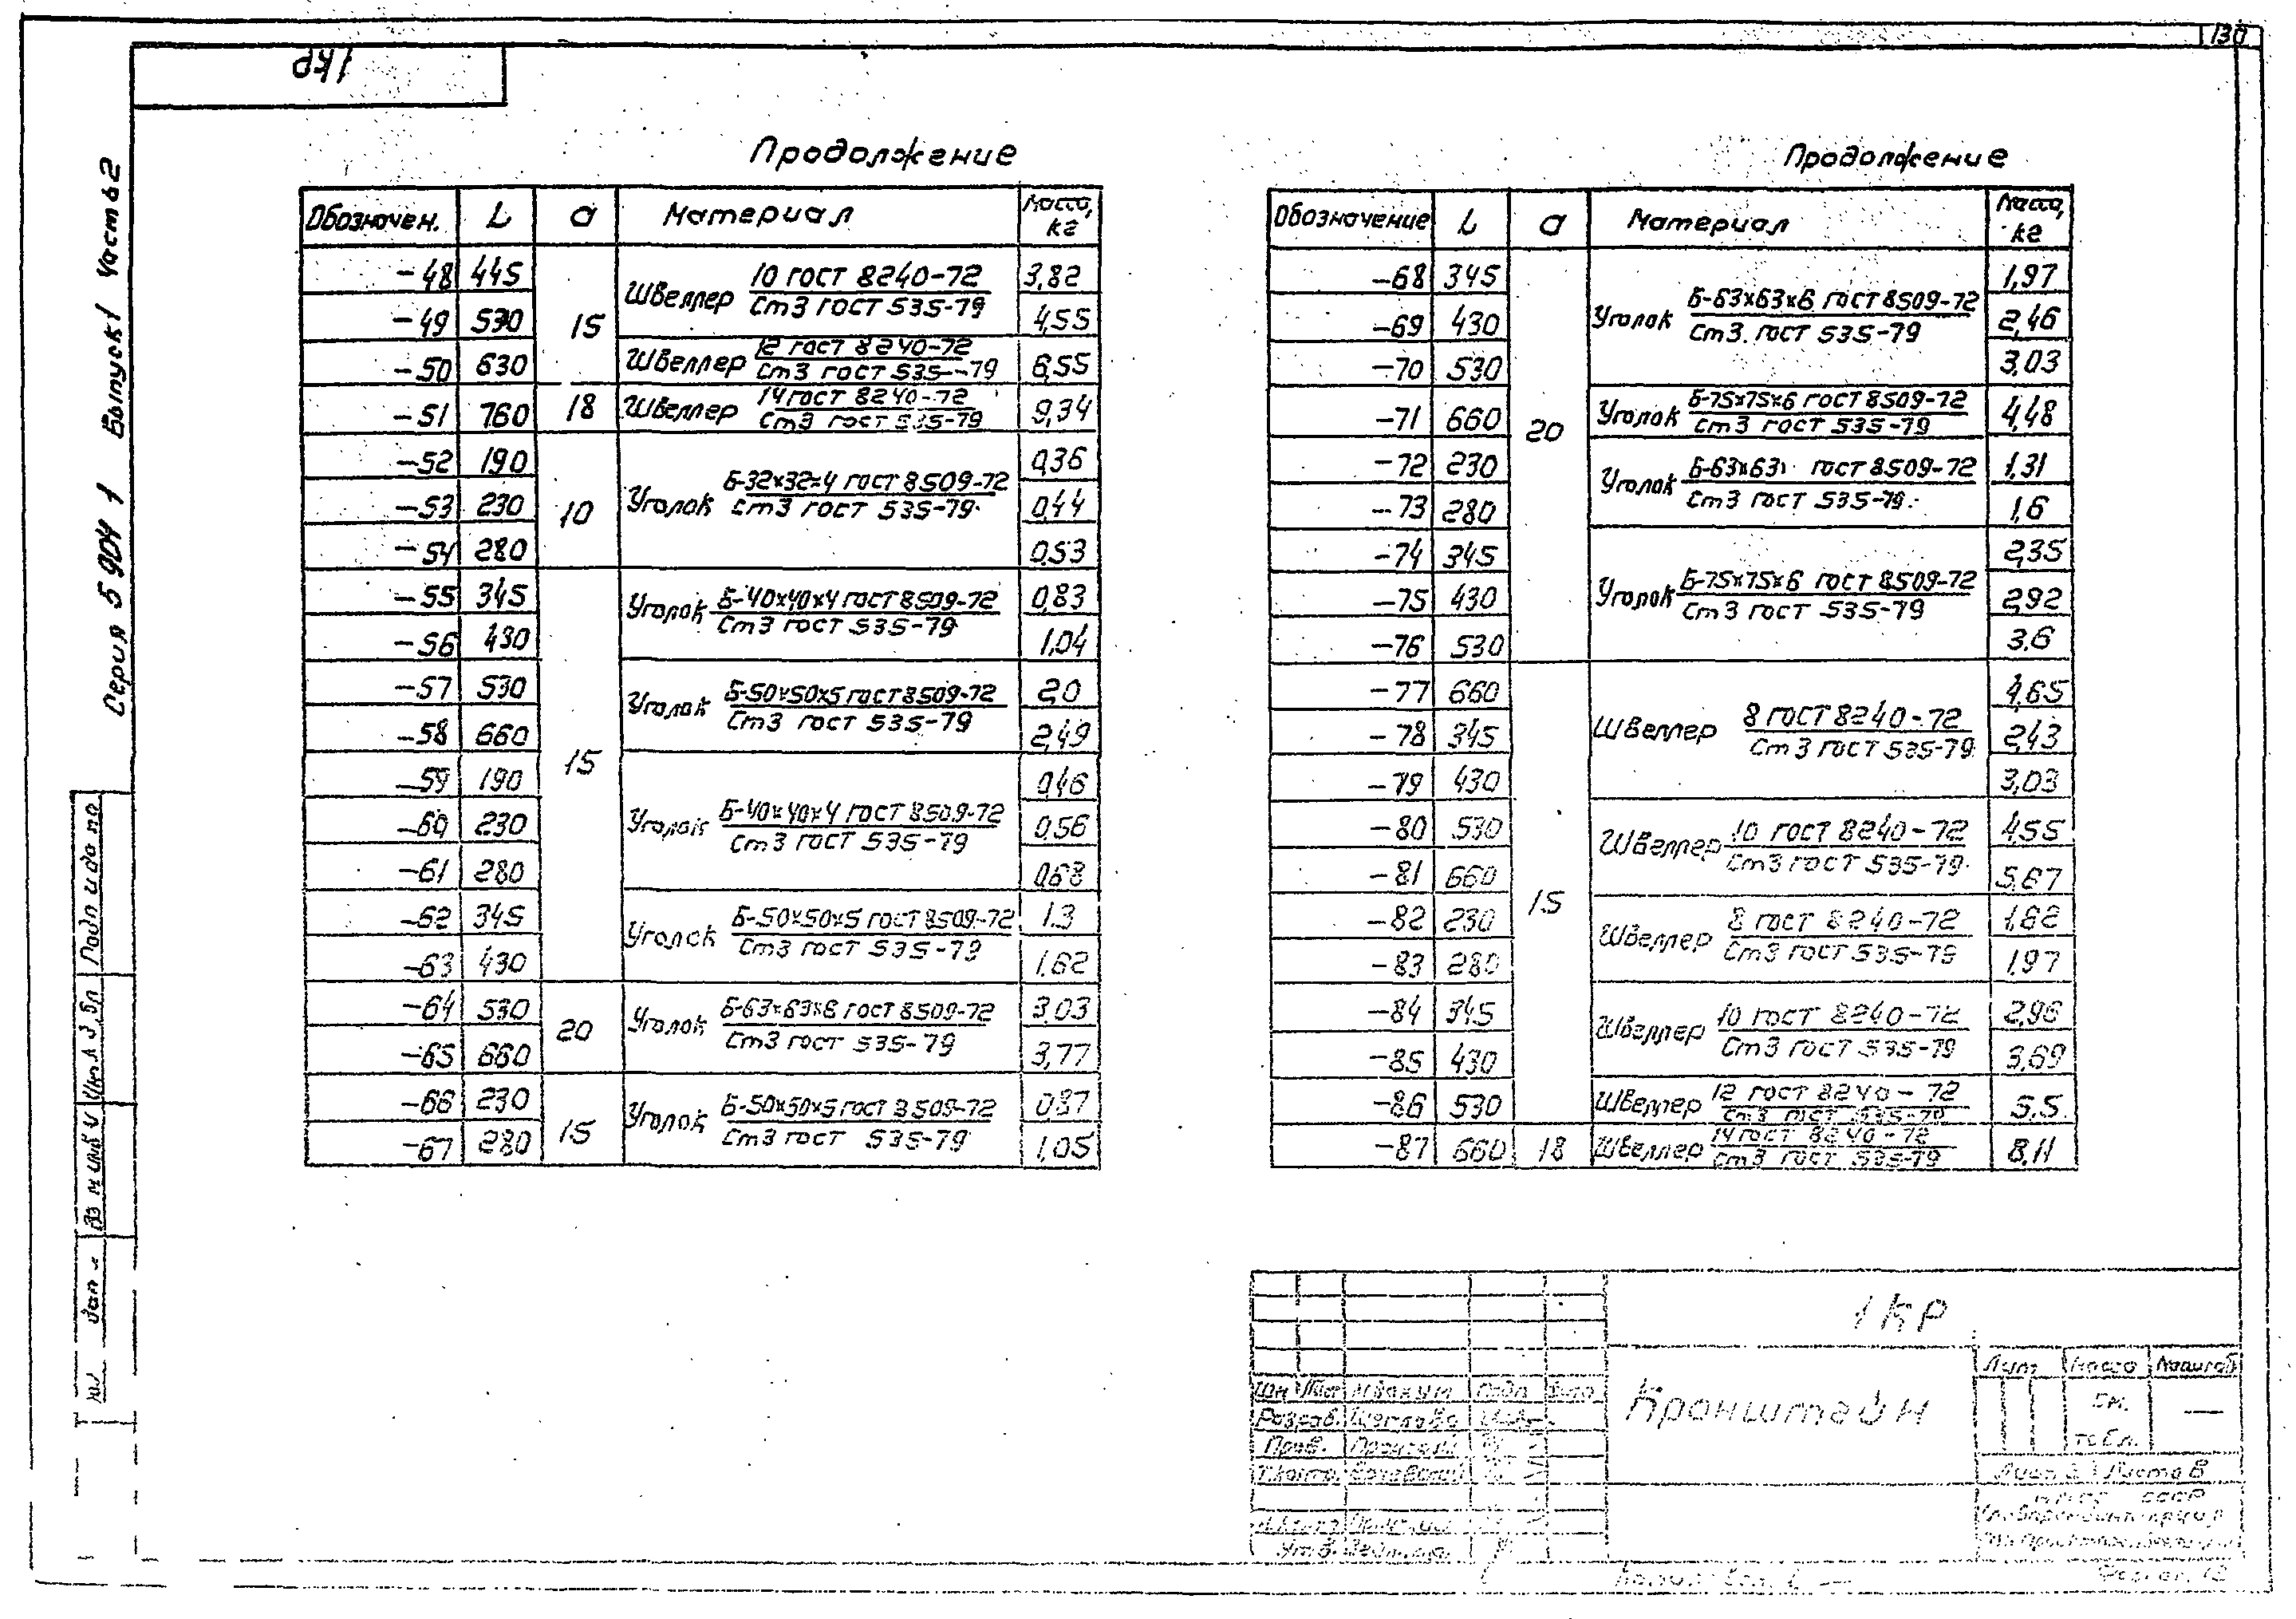 130
1КР
Серия 5 904 1 Выпуск 1 Часть 2
Продолжение
Обозначен. L a Материал Масса, кг
-48 445 15 Швеллер 10 ГОСТ 8240-72 / Ст3 ГОСТ 535-79 3,82
-49 530 4,55
-50 630 Швеллер 12 ГОСТ 8240-72 / Ст3 ГОСТ 535-79 6,55
-51 760 18 Швеллер 14 ГОСТ 8240-72 / Ст3 ГОСТ 535-79 9,34
-52 190 10 Уголок Б-32х32х4 ГОСТ 8509-72 / Ст3 ГОСТ 535-79 0,36
-53 230 0,44
-54 280 0,53
-55 345 15 Уголок Б-40х40х4 ГОСТ 8509-72 / Ст3 ГОСТ 535-79 0,83
-56 430 1,04
-57 530 Уголок Б-50х50х5 ГОСТ 8509-72 / Ст3 ГОСТ 535-79 2,0
-58 660 2,49
-59 190 Уголок Б-40х40х4 ГОСТ 8509-72 / Ст3 ГОСТ 535-79 0,46
-60 230 0,56
-61 280 0,68
-62 345 Уголок Б-50х50х5 ГОСТ 8509-72 / Ст3 ГОСТ 535-79 1.3
-63 430 1,62
-64 530 20 Уголок Б-63х63х6 ГОСТ 8509-72 / Ст3 ГОСТ 535-79 3,03
-65 660 3,77
-66 230 15 Уголок Б-50х50х5 ГОСТ 8509-72 / Ст3 ГОСТ 535-79 0,87
-67 280 1,05
Продолжение
Обозначение L a Материал Масса, кг
-68 345 20 Уголок Б-63х63х6 ГОСТ 8509-72 / Ст3 ГОСТ 535-79 1,97
-69 430 2,46
-70 530 3,03
-71 660 Уголок Б-75х75х6 ГОСТ 8509-72 / Ст3 ГОСТ 535-79 4,48
-72 230 Уголок Б-63х63 ГОСТ 8509-72 / Ст3 ГОСТ 535-79 1,31
-73 280 1,6
-74 345 Уголок Б-75х75х6 ГОСТ 8509-72 / Ст3 ГОСТ 535-79 2,35
-75 430 2,92
-76 530 3.6
-77 660 15 Швеллер 8 ГОСТ 8240-72 / Ст3 ГОСТ 535-79 4,65
-78 345 2,43
-79 430 3,03
-80 530 Швеллер 10 ГОСТ 8240-72 / Ст3 ГОСТ 535-79 4,55
-81 660 5,67
-82 230 Швеллер 8 ГОСТ 8240-72 / Ст3 ГОСТ 535-79 1,62
-83 280 1,97
-84 345 Швеллер 10 ГОСТ 8240-72 / Ст3 ГОСТ 535-79 2,96
-85 430 3,69
-86 530 Швеллер 12 ГОСТ 8240-72 / Ст3 ГОСТ 535-79 5.5
-87 660 18 Швеллер 14 ГОСТ 8240-72 / Ст3 ГОСТ 535-79 8,11
1КР
Кронштейн
Лит. Масса Масштаб
См. табл. —
Разраб. Щеглова
Пров.
Т.контр.
Утв.
СССР